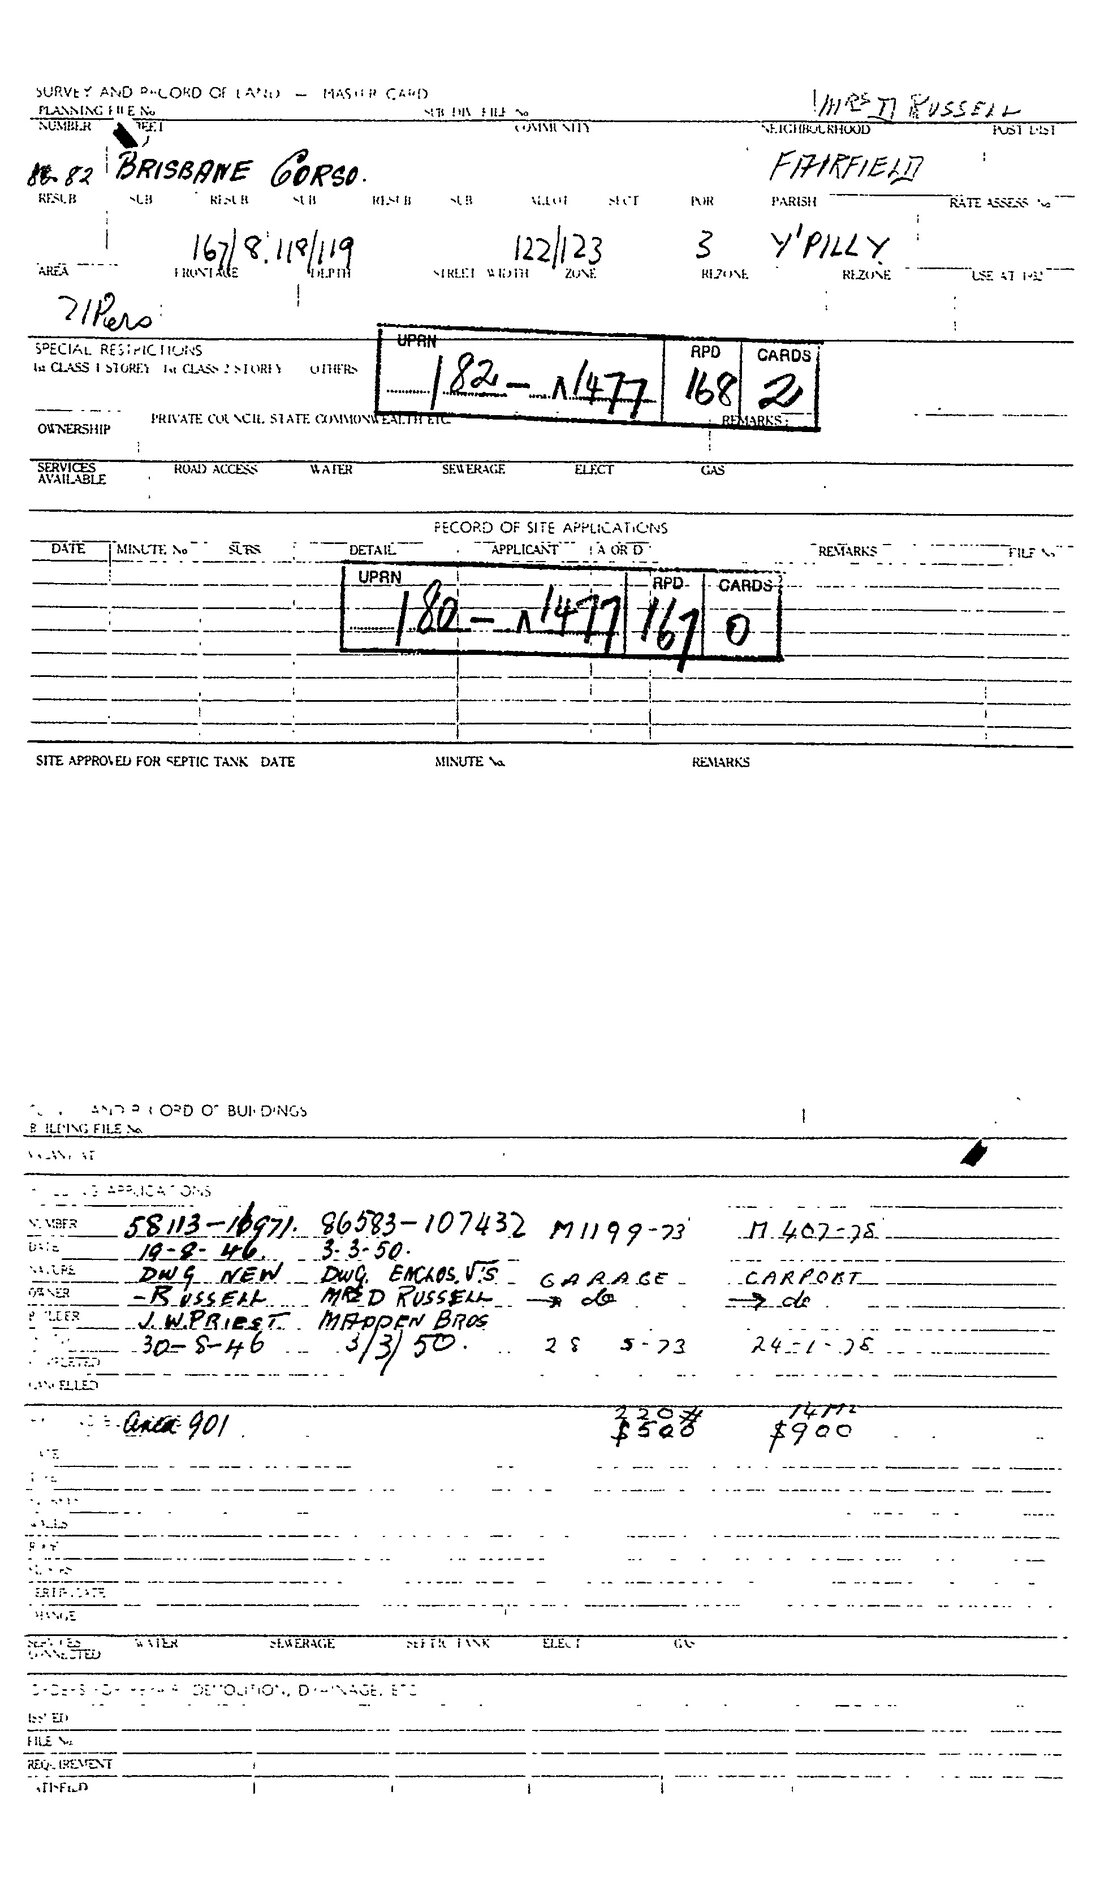 SURVEY AND RECORD OF LAND — MASTER CARD
MRS D RUSSELL
PLANNING FILE No SUB DIV. FILE No
NUMBER STREET COMMUNITY NEIGHBOURHOOD POST DIST
82 BRISBANE CORSO. FAIRFIELD
RESUB SUB RESUB SUB RESUB SUB ALLOT SECT POR PARISH RATE ASSESS No
167/8. 118/119 122/123 3 Y'PILLY
AREA FRONTAGE DEPTH STREET WIDTH ZONE REZONE REZONE USE AT
71Pers
SPECIAL RESTRICTIONS
1st CLASS 1 STOREY 1st CLASS 2 STOREY OTHERS
UPRN RPD CARDS
182 - 1477 168 2
OWNERSHIP PRIVATE COUNCIL STATE COMMONWEALTH ETC. REMARKS:
SERVICES AVAILABLE ROAD ACCESS WATER SEWERAGE ELECT GAS
RECORD OF SITE APPLICATIONS
DATE MINUTE No SUBS DETAIL APPLICANT A OR D REMARKS FILE No
UPRN RPD CARDS
180 - 1477 167 0
SITE APPROVED FOR SEPTIC TANK DATE MINUTE No. REMARKS
AND RECORD OF BUILDINGS
BUILDING FILE No.
VACANT AT
BUILDING APPLICATIONS
NUMBER 58113-16971. 86583-107432 M1199-73 M 407-78
DATE 19-8-46. 3-3-50.
NATURE DWG NEW DWG. ENCLOS. V.S GARAGE CARPORT
OWNER -RUSSELL MRS D RUSSELL → do → do
BUILDER J.W.PRIEST MADDEN BROS
30-8-46 3/3/50. 28 5-73 24-1-78
COMPLETED
CANCELLED
area 901 220# 14M2
$500 $900
DATE
TYPE
WALLS
ROOF
CERTIFICATE
CHANGE
SERVICES CONNECTED WATER SEWERAGE SEPTIC TANK ELECT GAS
ORDERS FOR REPAIR, DEMOLITION, DRAINAGE, ETC
ISSUED
FILE No
REQUIREMENT
SATISFIED